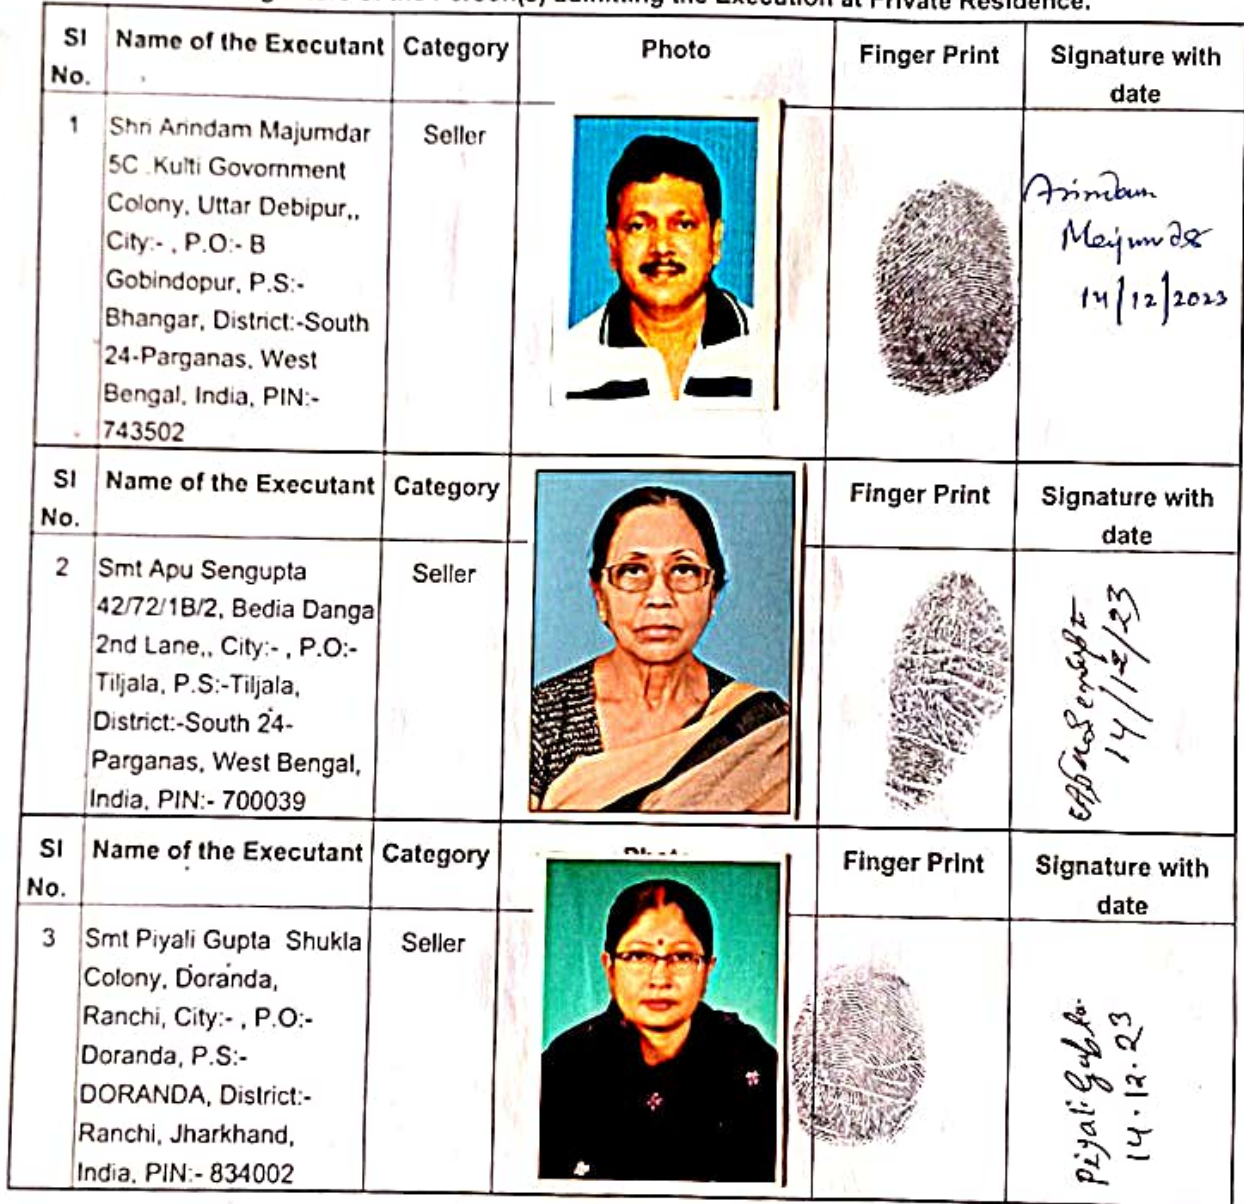 the Person(s) admitting the Execution at Private Residence.
Sl No. Name of the Executant Category Photo Finger Print Signature with date
1 Shri Arindam Majumdar Seller
5C Kulti Govornment
Colony, Uttar Debipur,,
City:- , P.O:- B
Gobindopur, P.S:-
Bhangar, District:-South
24-Parganas, West
Bengal, India, PIN:-
743502
Arindam
Majumdar
14/12/2023
Sl No. Name of the Executant Category Finger Print Signature with date
2 Smt Apu Sengupta Seller
42/72/1B/2, Bedia Danga
2nd Lane,, City:- , P.O:-
Tiljala, P.S:-Tiljala,
District:-South 24-
Parganas, West Bengal,
India, PIN:- 700039
Apu Sengupta
14/12/23
Sl No. Name of the Executant Category Photo Finger Print Signature with date
3 Smt Piyali Gupta Shukla Seller
Colony, Doranda,
Ranchi, City:- , P.O:-
Doranda, P.S:-
DORANDA, District:-
Ranchi, Jharkhand,
India, PIN:- 834002
Piyali Gupta
14.12.23